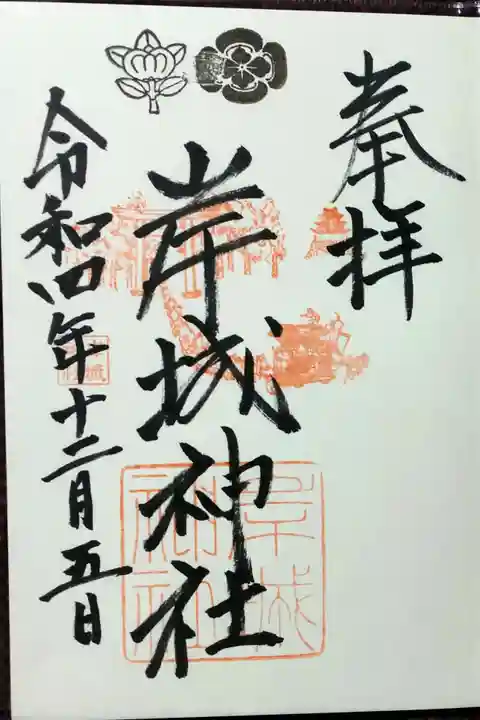 奉拝
岸城神社
岸城神社
令和四年十二月五日